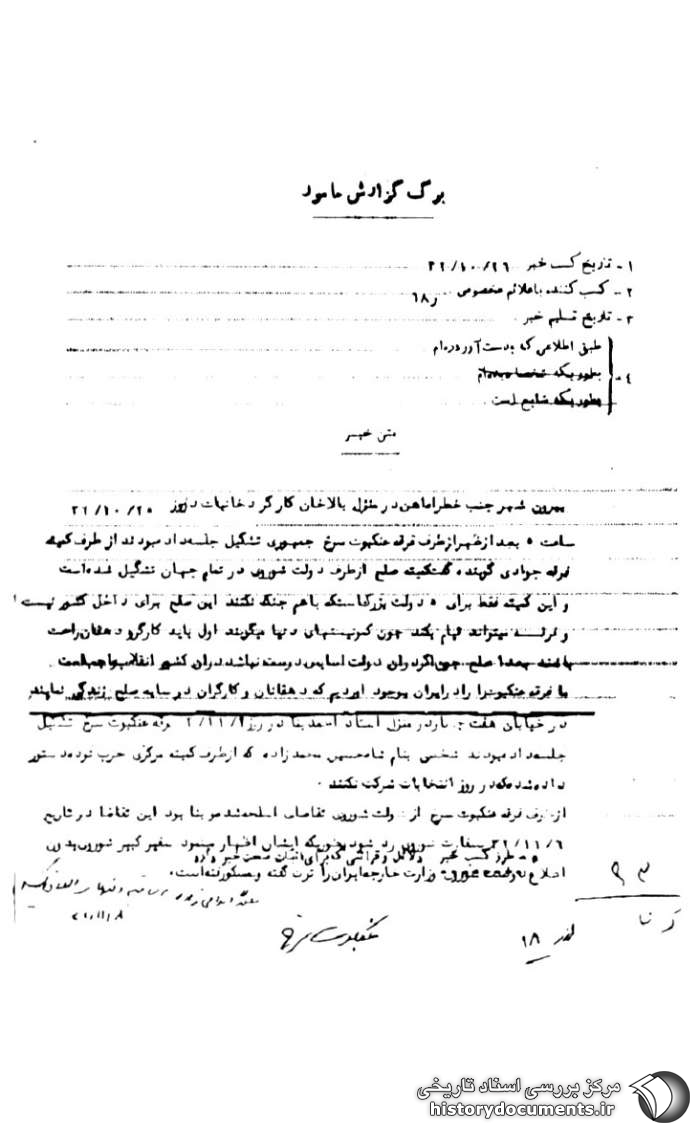 برگ گزارش مامور
۱- تاریخ کسب خبر ۳۲/۱۰/۲۶
۲- کسب کننده باعلائم مخصوص ر۶۸
۳- تاریخ تسلیم خبر
۴-
طبق اطلاعی که بدست آورده‌ام
بطوریکه شخصا دیده‌ام
بطوریکه شایع است
متن خبر
بیرون شهر جنب خط راه‌آهن در منزل بالاخان کارگر دخانیات در روز ۳۲/۱۰/۲۵
ساعت ۵ بعد از ظهر از طرف فرقه عنکبوت سرخ جمهوری تشکیل جلسه داده بودند از طرف کمیته
فرقه جوادی گوینده گفت کمیته صلح از طرف دولت شوروی در تمام جهان تشکیل شده است
و این کمیته فقط برای ۵ دولت بزرگ است که باهم جنگ نکنند این صلح برای داخل کشور نیست
و فرقه میتواند قیام بکند چون کمونیستهای دنیا میگویند اول باید کارگر و دهقان راحت
باشند بعدا صلح چون اگر در این دولت اساس درست نباشد در آن کشور انقلاب واجب است
ما فرقه عنکبوت را در ایران بوجود آوردیم که دهقانان و کارگران در سایه صلح زندگی نمایند
در خیابان هفت چنار در منزل استاد احمد بنا در روز فرقه عنکبوت سرخ تشکیل
جلسه داده بودند شخصی بنام شاه‌حسین محمدزاده که از طرف کمیته مرکزی حزب توده دستور
داده شده که در روز انتخابات شرکت نکنند .
از طرف فرقه عنکبوت سرخ از دولت شوروی تقاضای اسلحه شده و بنا بود این تقاضا در تاریخ
۳۲/۱۱/۶ بسفارت شوروی رد شود بطوریکه ایشان اظهار مینمود سفیر کبیر شوروی بدون
۵- طرز کسب خبر و دلائل و قرائنی که برای اثبات صحت خبر دارد
اطلاع وزارت خارجه ایران را ترک گفته و بمسکو رفته است.
۹۳
عنکبوت سرخ
۱۸
مرکز بررسی اسناد تاریخی
historydocuments.ir